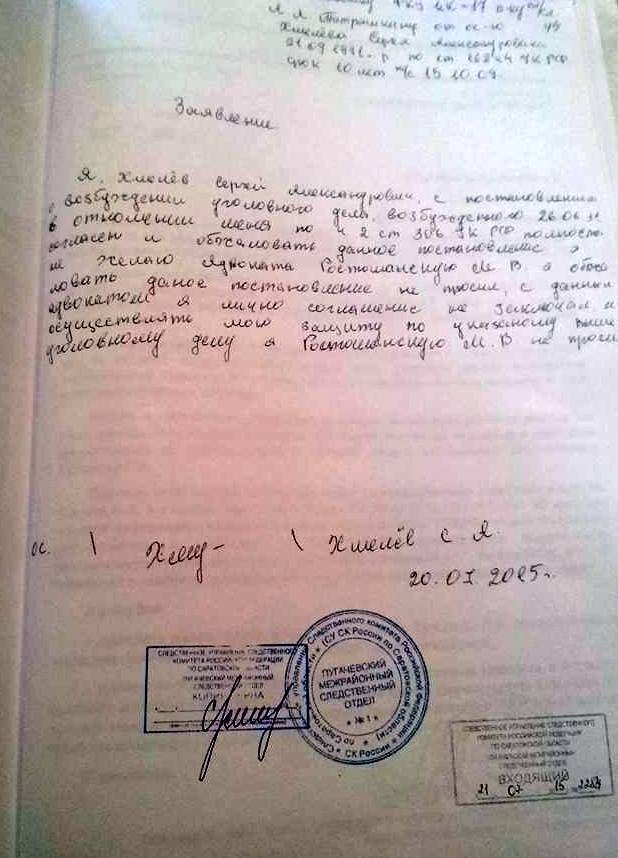 ФКУ ИК-17
от ос-го
Хмелёва Сергея Александровича
срок 10 лет
Заявление
Я, Хмелёв Сергей Александрович, с постановлением
о возбуждении уголовного дела, возбужденного 26.06
в отношении меня по ч 2 ст 306 УК РФ полностью
согласен и обжаловать данное постановление
не желаю Адвоката Ростошанскую М. В. обжа
ловать даное постановление не просил, с данным
адвокатом я лично соглашение не заключал, и
осуществлять мою защиту по указаному выше
уголовному делу я Ростошанскую М. В не просил
ос. \ \ Хмелёв С. А.
20.07.2015г.
СЛЕДСТВЕННОЕ УПРАВЛЕНИЕ СЛЕДСТВЕННОГО
КОМИТЕТА РОССИЙСКОЙ ФЕДЕРАЦИИ
ПО САРАТОВСКОЙ ОБЛАСТИ
ПУГАЧЕВСКИЙ МЕЖРАЙОННЫЙ
СЛЕДСТВЕННЫЙ ОТДЕЛ
КОПИЯ ВЕРНА
управление Следственного комитета Российской Федерации
по Саратовской области (СУ СК России по Саратовской области)
ПУГАЧЕВСКИЙ
МЕЖРАЙОННЫЙ
СЛЕДСТВЕННЫЙ
ОТДЕЛ
* №1 *
СЛЕДСТВЕННОЕ УПРАВЛЕНИЕ СЛЕДСТВЕННОГО
КОМИТЕТА РОССИЙСКОЙ ФЕДЕРАЦИИ
ПО САРАТОВСКОЙ ОБЛАСТИ
МЕЖРАЙОННЫЙ
СЛЕДСТВЕННЫЙ ОТДЕЛ
ВХОДЯЩИЙ
21 07 15